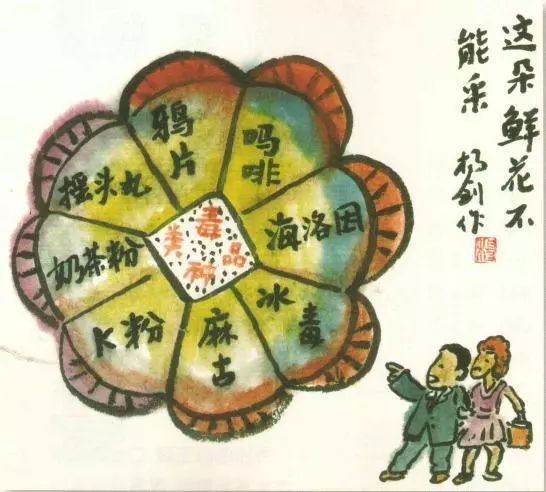 这朵鲜花不
能采 杨剑作
毒品种类
鸦片
吗啡
海洛因
冰毒
麻古
K粉
奶茶粉
摇头丸